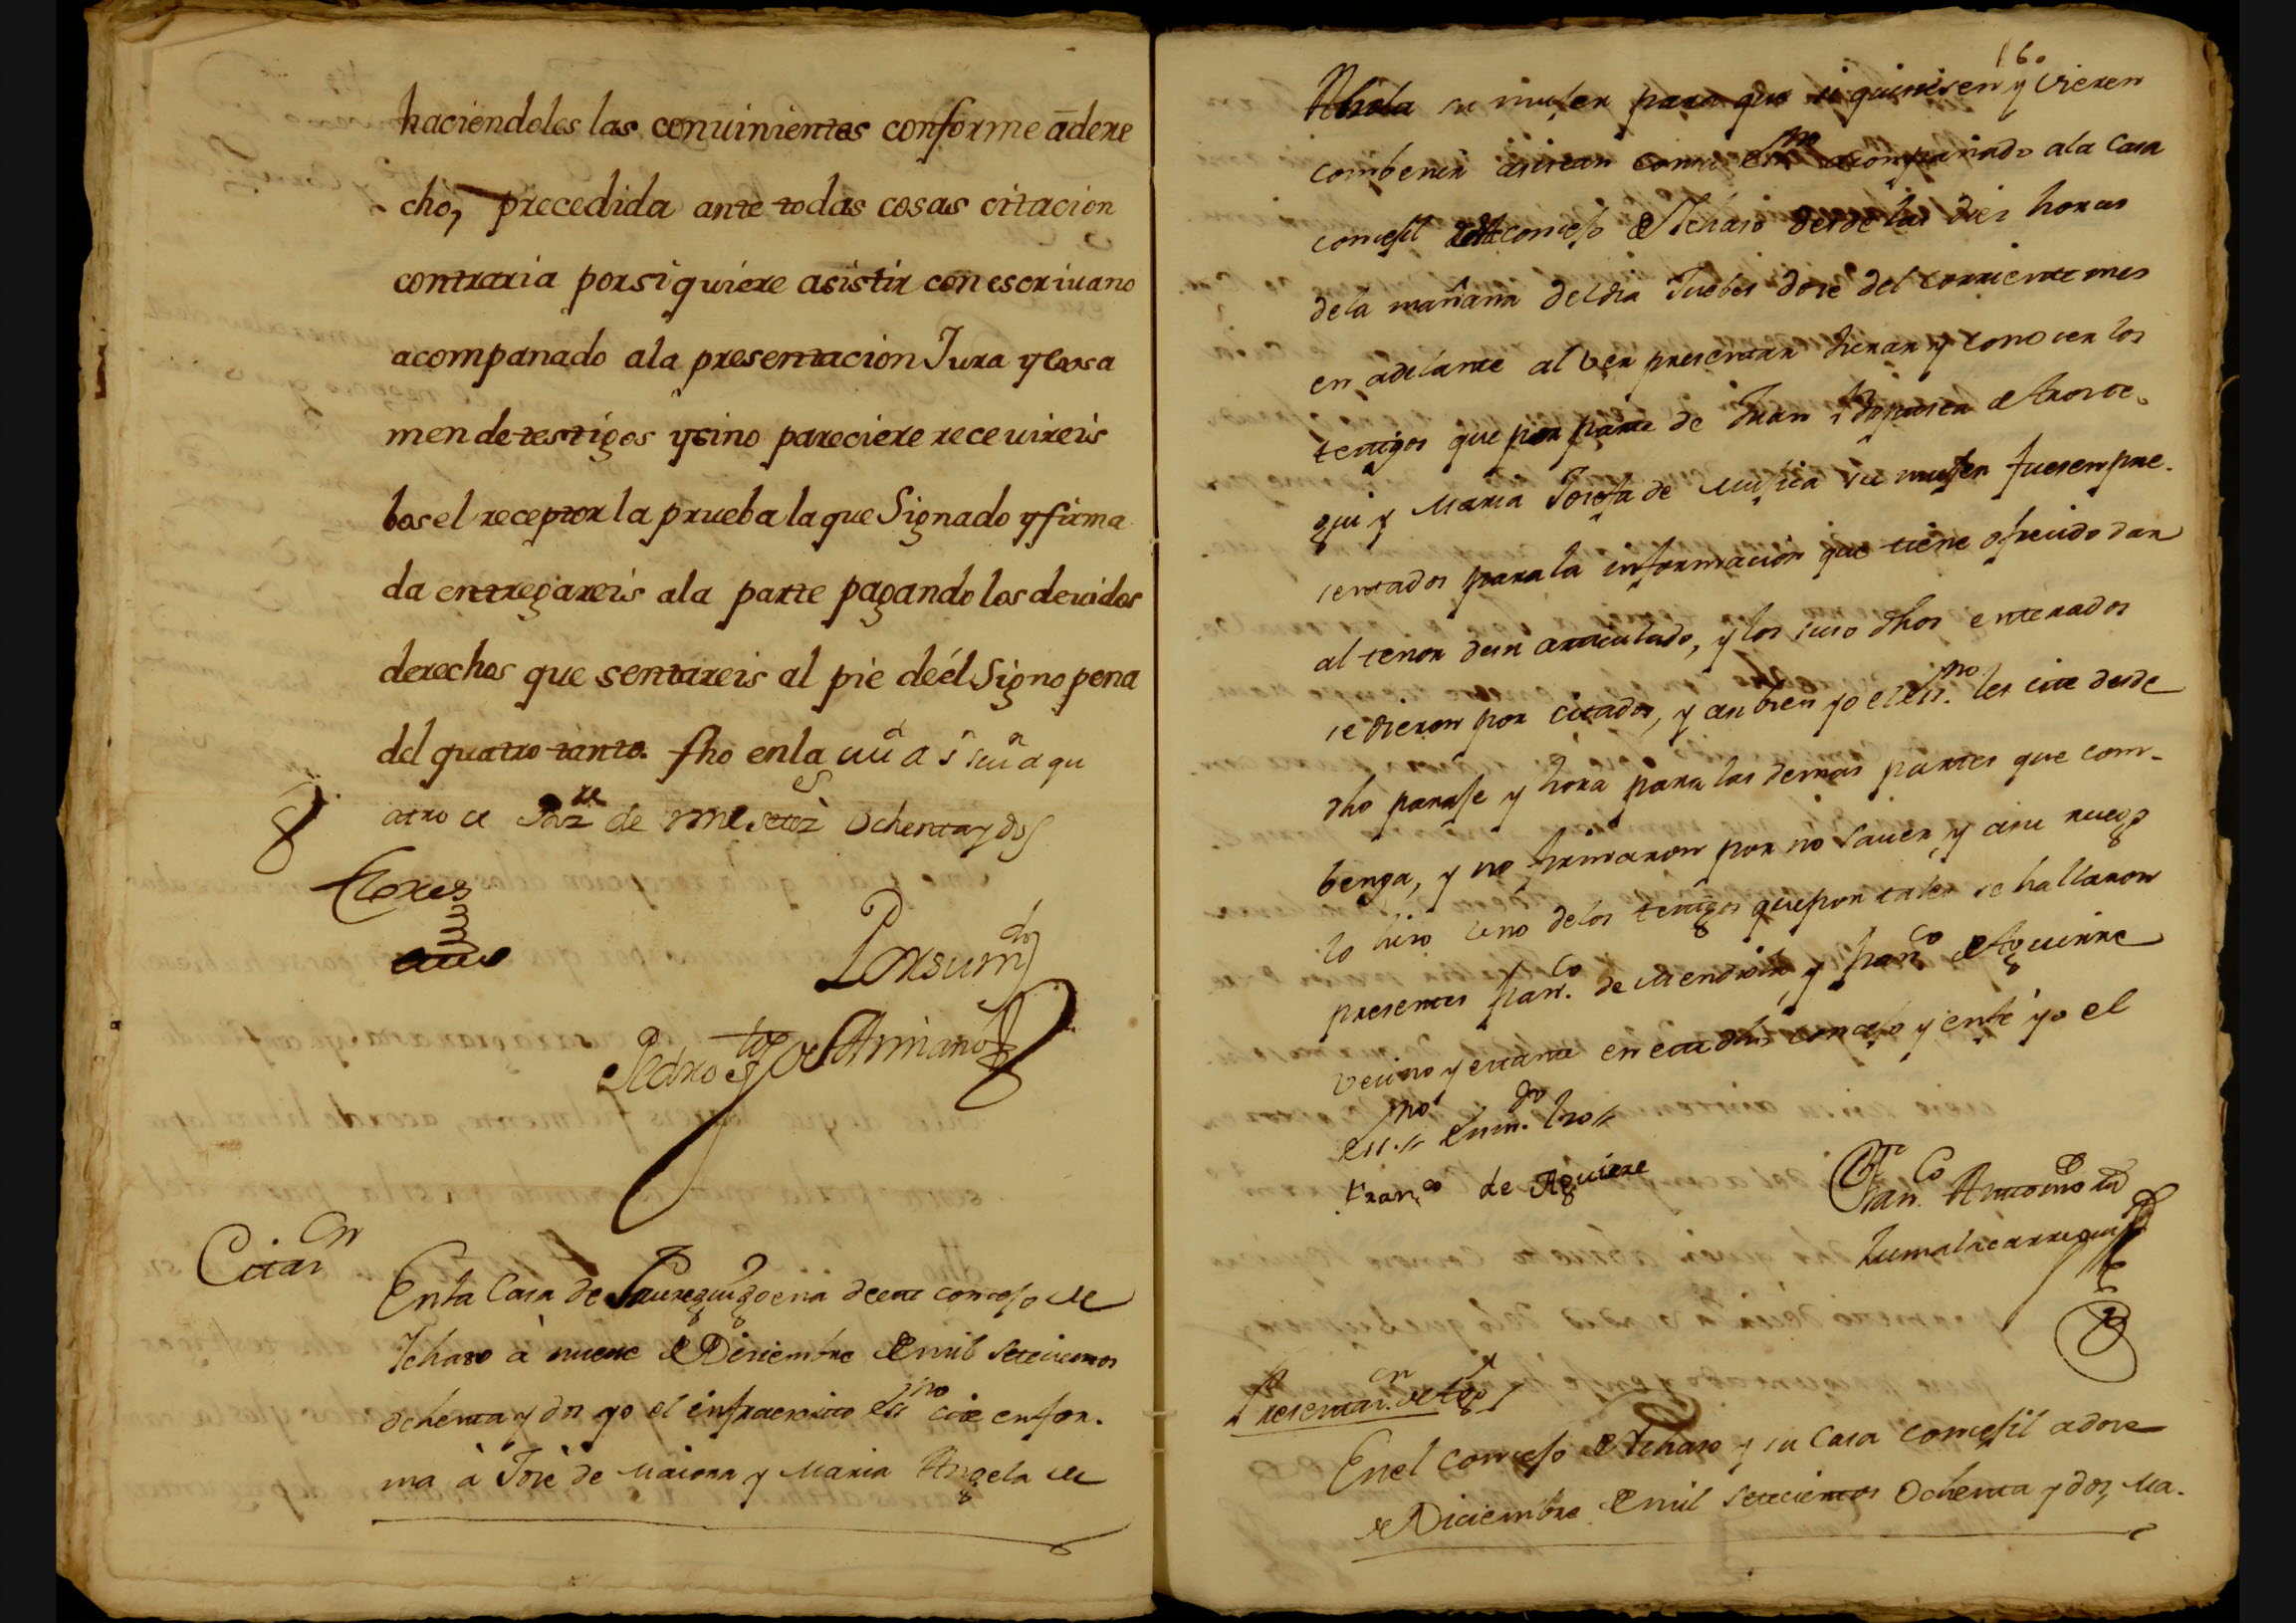 haciendoles las convinientes conforme adere
cho, precedida ante todas cosas citacion
contraria por si quiere asistir con escrivano
acompanado ala presentacion Jura y exsa
men de testigos y sino pareciere recevireis
bos el receptor la prueba la que Signado y firma
da entregareis ala parte pagando los devidos
derechos que sentareis al pie de él Signo pena
del quatro tanto. fho en la
atro de de mil settez ochenta y dos
Flores
Por su md
Pedro de
Citaⁿ
En la Casa de Jaureguigoena de este concejo de
Ichaso à nueve de Diciembre de mil setecientos
ochenta y dos yo el infraescrito essno cite en for-
ma à José de Maiora y Maria Angela de
160
su mujer para que si quisiesen y vieren
combenir asistan con essno acompañado ala Casa
concejil deste concejo de Ichaso desde las diez horas
dela mañana del dia Juebes dose del corriente mes
en adelante al ver presentar Jurar y conocer los
testigos que por parte de Juan Bapttista de Aroste-
gui y Maria Josefa de Mujica su mujer fuesen pre-
sentados para la informacion que tiene ofrecido dar
al tenor de su articulado, y los suso dhos enterados
se dieron por citados, y an bien yo el essno les cite desde
dho paraje y hora para las demas partes que com-
benga, y no firmaron por no saver, y a su ruego
lo hiso uno de los testigos que por tales se hallaron
presentes Franco. de Mendiola, y Franco de Aguirre
vecino y estante en este dho concejo y en fe yo el
essno
Franco de Aguirre
Franco Antonio de
Zumalacarregui
Presentacn. de tgos
En el concejo de Ichaso y su Casa concejil a dose
de Diciembre de mil setecientos ochenta y dos, Ma-